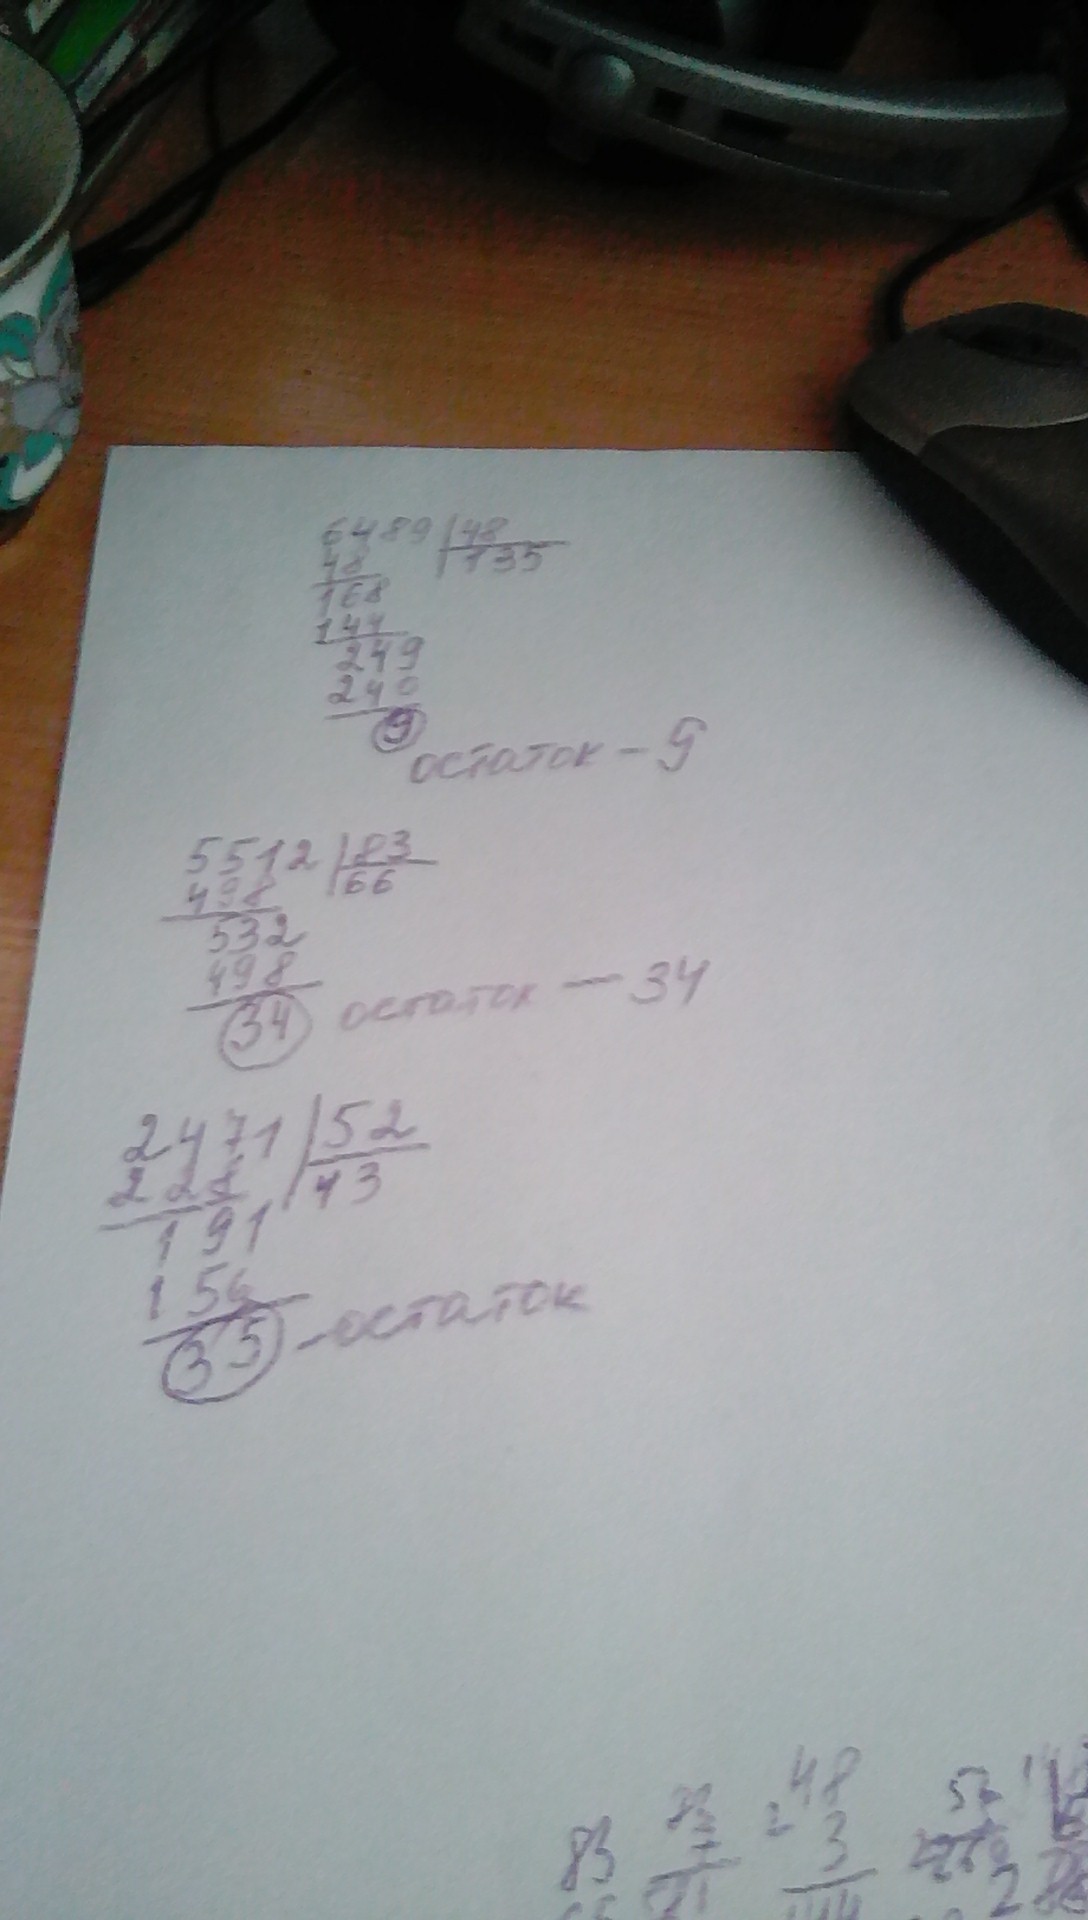 6489 | 48
48 | 135
168
144
249
240
9
остаток - 9
5512 | 83
498 | 66
532
498
34 остаток — 34
2471 | 52
228 | 43
191
156
35 - остаток
48
83
3
144